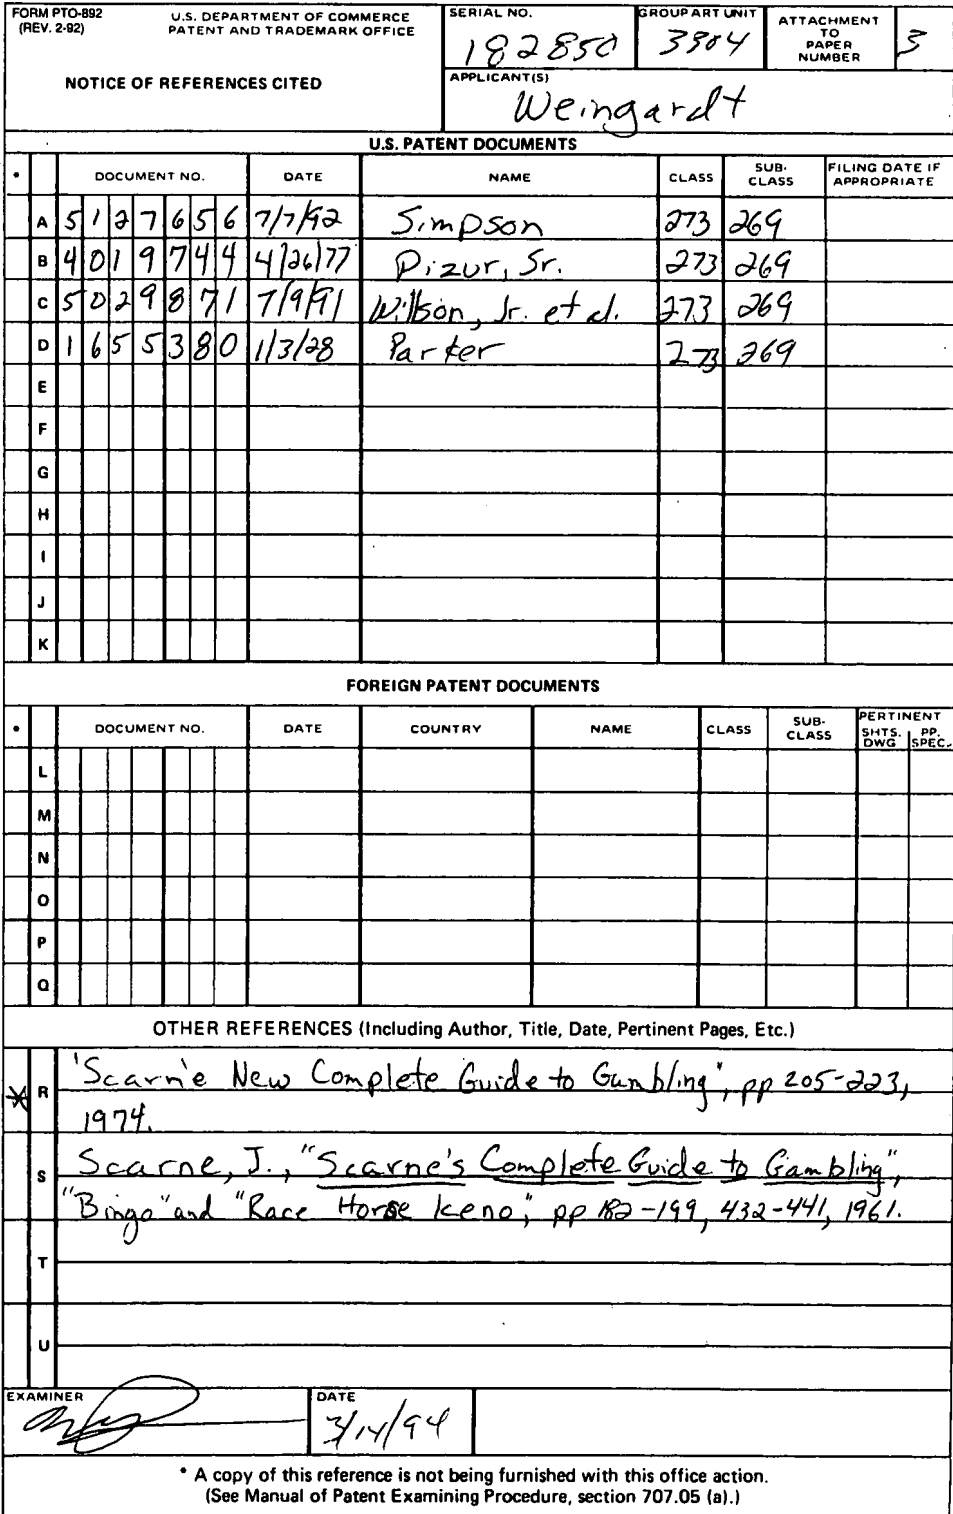 FORM PTO-892
(REV. 2-92)
U.S. DEPARTMENT OF COMMERCE
PATENT AND TRADEMARK OFFICE
NOTICE OF REFERENCES CITED
SERIAL NO.
182850
GROUP ART UNIT
3304
ATTACHMENT
TO
PAPER
NUMBER
3
APPLICANT(S)
Weingardt
U.S. PATENT DOCUMENTS
* DOCUMENT NO. DATE NAME CLASS SUB-CLASS FILING DATE IF APPROPRIATE
A 5127656 7/7/92 Simpson 273 269
B 4019744 4/26/77 Pizur, Sr. 273 269
C 5029871 7/9/91 Willson, Jr. et al. 273 269
D 1655380 1/3/28 Parker 273 269
E
F
G
H
I
J
K
FOREIGN PATENT DOCUMENTS
* DOCUMENT NO. DATE COUNTRY NAME CLASS SUB-CLASS PERTINENT SHTS. DWG PP. SPEC.
L
M
N
O
P
Q
OTHER REFERENCES (Including Author, Title, Date, Pertinent Pages, Etc.)
* R 'Scarn'e New Complete Guide to Gambling", pp 205-223,
1974.
S Scarne, J., "Scarne's Complete Guide to Gambling",
"Bingo" and "Race Horse Keno", pp 182-199, 432-441, 1961.
T
U
EXAMINER
DATE
3/14/94
* A copy of this reference is not being furnished with this office action.
(See Manual of Patent Examining Procedure, section 707.05 (a).)